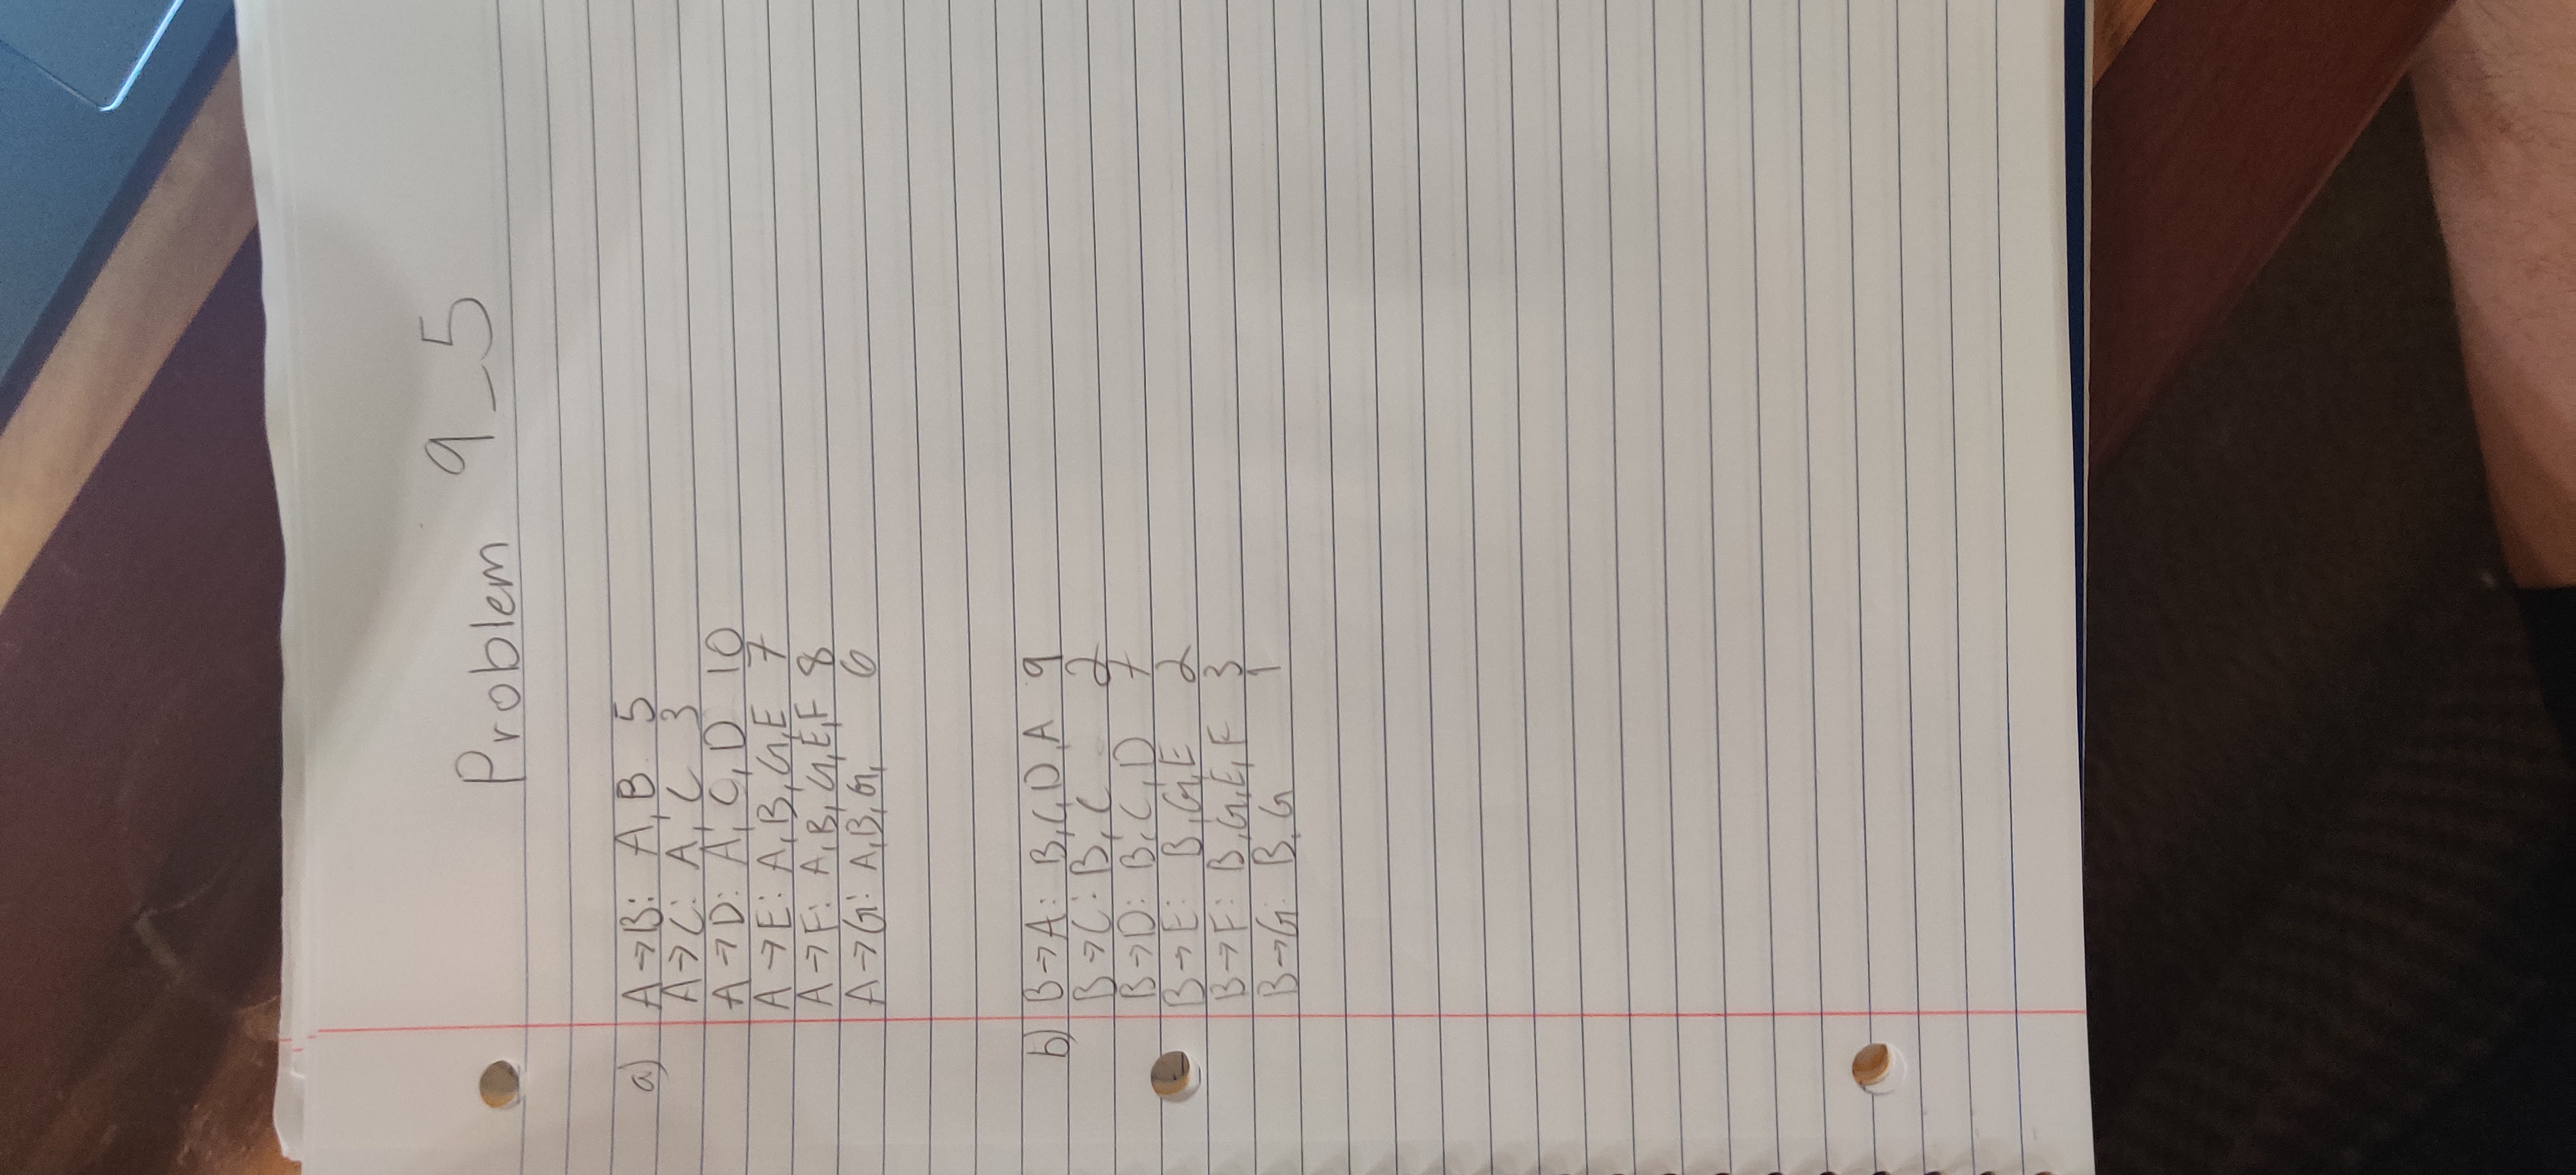 Problem 9_5
a) A→B: A, B 5
A→C: A, C 3
A→D: A, C, D 10
A→E: A, B, G, E 7
A→F: A, B, G, E, F 8
A→G: A, B, G, 6
b) B→A: B, C, D, A 9
B→C: B, C 2
B→D: B, C, D 7
B→E: B, G, E 2
B→F: B, G, E, F 3
B→G: B, G 1